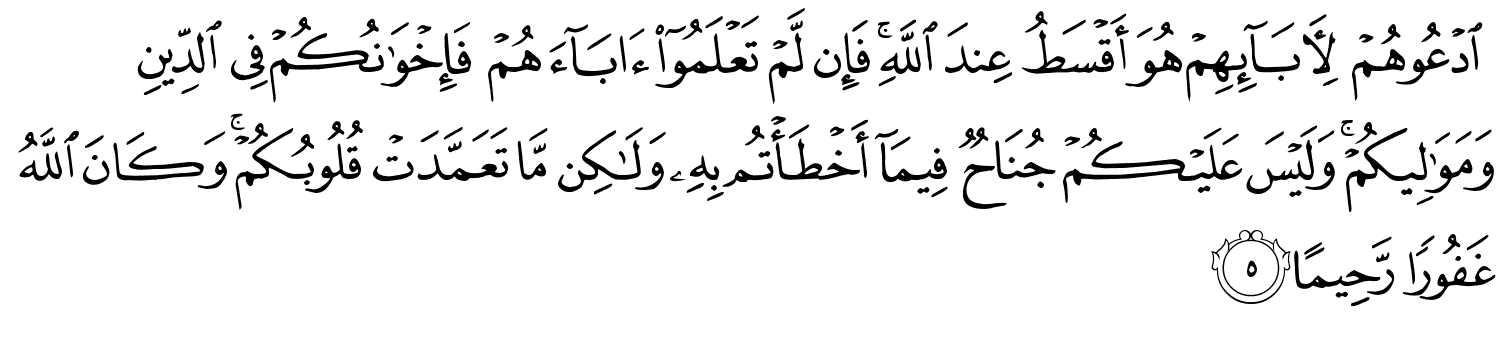 ٱدۡعُوهُمۡ لِأَٓبَآئِهِمۡ هُوَ أَقۡسَطُ عِندَ ٱللَّهِۚ فَإِن لَّمۡ تَعۡلَمُوٓاْ ءَابَآءَهُمۡ فَإِخۡوَٰنُكُمۡ فِي ٱلدِّينِ
وَمَوَٰلِيكُمۡۚ وَلَيۡسَ عَلَيۡكُمۡ جُنَاحٞ فِيمَآ أَخۡطَأۡتُم بِهِۦ وَلَٰكِن مَّا تَعَمَّدَتۡ قُلُوبُكُمۡۚ وَكَانَ ٱللَّهُ
غَفُورٗا رَّحِيمًا ٥